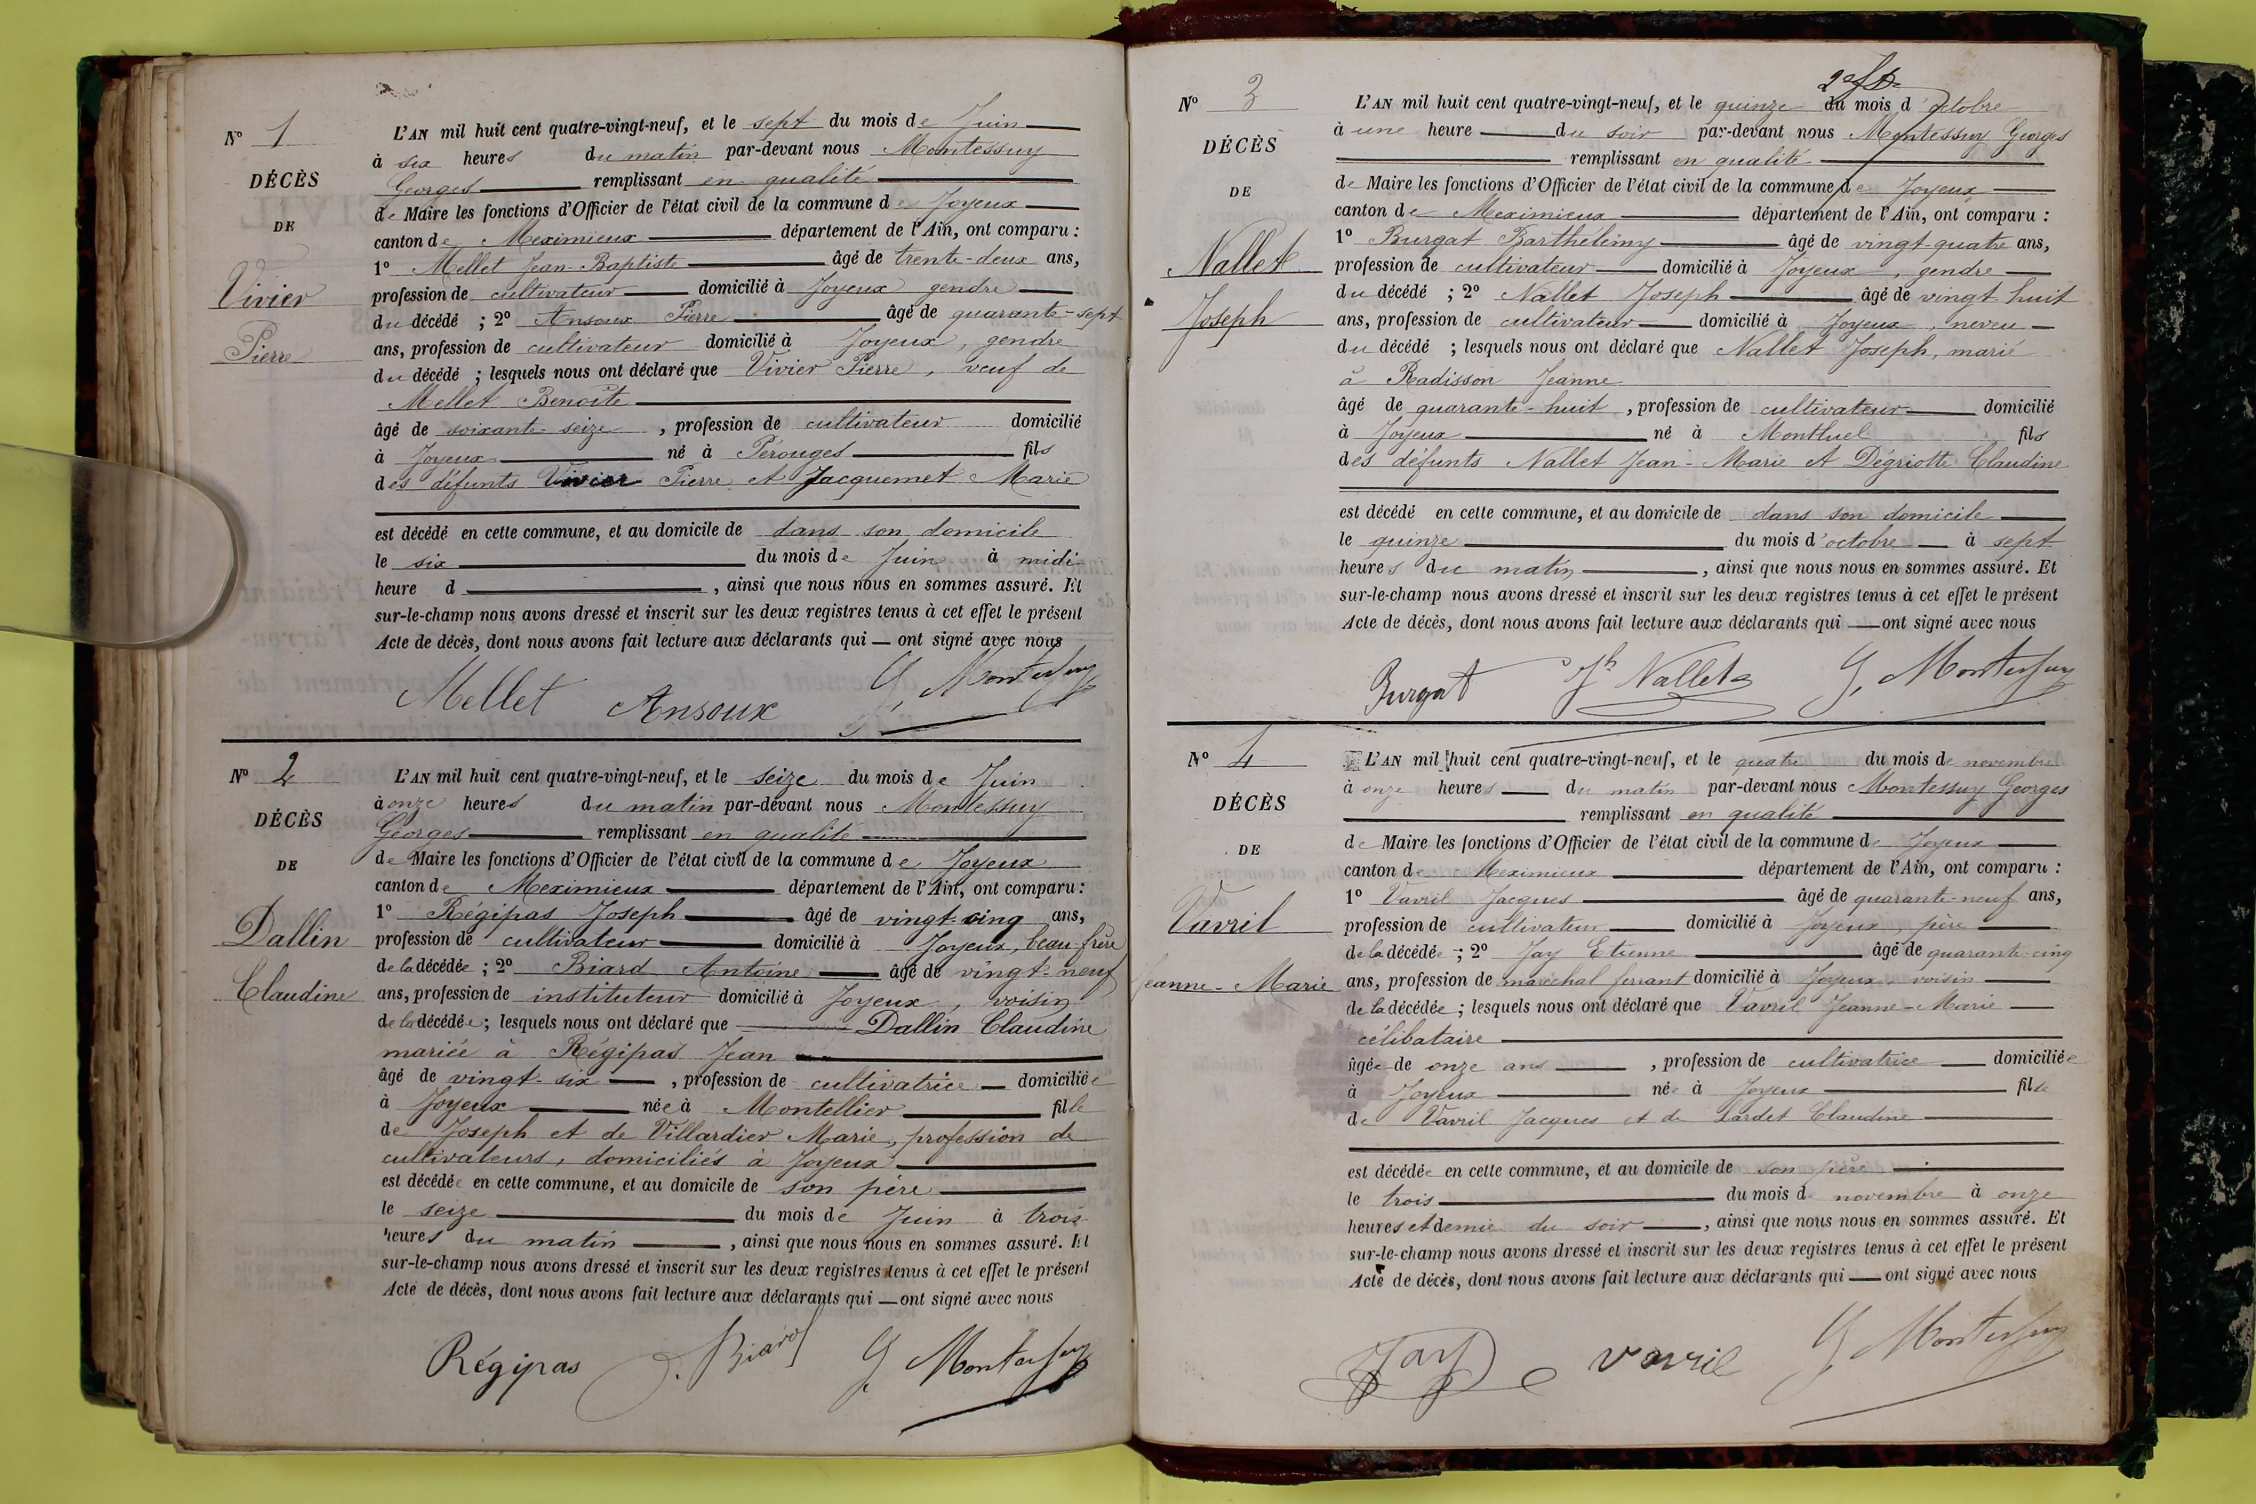 N° 1
DÉCÈS
DE
Vivier
Pierre
L'AN mil huit cent quatre-vingt-neuf, et le sept du mois de Juin
à six heures du matin par-devant nous Montessuy
Georges remplissant en qualité
de Maire les fonctions d'Officier de l'état civil de la commune de Joyeux
canton de Meximieux département de l'Ain, ont comparu :
1° Mellet Jean-Baptiste âgé de trente-deux ans,
profession de cultivateur domicilié à Joyeux gendre
du décédé ; 2° Ansoux Pierre âgé de quarante-sept
ans, profession de cultivateur domicilié à Joyeux, gendre
du décédé ; lesquels nous ont déclaré que Vivier Pierre, veuf de
Mellet Benoîte
âgé de soixante-seize , profession de cultivateur domicilié
à Joyeux né à Pérouges fils
des défunts Vivier Pierre et Jacquemet Marie
est décédé en cette commune, et au domicile de dans son domicile
le six du mois de Juin à midi
heure d , ainsi que nous nous en sommes assuré. Et
sur-le-champ nous avons dressé et inscrit sur les deux registres tenus à cet effet le présent
Acte de décès, dont nous avons fait lecture aux déclarants qui — ont signé avec nous
Mellet Ansoux G. Montessuy
N° 2
DÉCÈS
DE
Dallin
Claudine
L'AN mil huit cent quatre-vingt-neuf, et le seize du mois de Juin
à onze heures du matin par-devant nous Montessuy
Georges remplissant en qualité
de Maire les fonctions d'Officier de l'état civil de la commune de Joyeux
canton de Meximieux département de l'Ain, ont comparu :
1° Régipas Joseph âgé de vingt-cinq ans,
profession de cultivateur domicilié à Joyeux, beau-frère
de la décédée ; 2° Biard Antoine âgé de vingt-neuf
ans, profession de instituteur domicilié à Joyeux, voisin
de la décédée ; lesquels nous ont déclaré que Dallin Claudine
mariée à Régipas Jean
âgé de vingt-six , profession de cultivatrice domiciliée
à Joyeux née à Montellier fille
de Joseph et de Villardier Marie, profession de
cultivateurs, domiciliés à Joyeux
est décédée en cette commune, et au domicile de son père
le seize du mois de Juin à trois
heures du matin , ainsi que nous nous en sommes assuré. Et
sur-le-champ nous avons dressé et inscrit sur les deux registres tenus à cet effet le présent
Acte de décès, dont nous avons fait lecture aux déclarants qui — ont signé avec nous
Régipas Biard G. Montessuy
N° 3
DÉCÈS
DE
Nallet
Joseph
L'AN mil huit cent quatre-vingt-neuf, et le quinze du mois d'octobre
à une heure du soir par-devant nous Montessuy Georges
remplissant en qualité
de Maire les fonctions d'Officier de l'état civil de la commune de Joyeux
canton de Meximieux département de l'Ain, ont comparu :
1° Burgat Barthélémy âgé de vingt-quatre ans,
profession de cultivateur domicilié à Joyeux, gendre
du décédé ; 2° Nallet Joseph âgé de vingt huit
ans, profession de cultivateur domicilié à Joyeux, neveu
du décédé ; lesquels nous ont déclaré que Nallet Joseph, marié
à Radisson Jeanne
âgé de quarante-huit , profession de cultivateur domicilié
à Joyeux né à Montluel fils
des défunts Nallet Jean-Marie et Dégriotte Claudine
est décédé en cette commune, et au domicile de dans son domicile
le quinze du mois d'octobre à sept
heures du matin , ainsi que nous nous en sommes assuré. Et
sur-le-champ nous avons dressé et inscrit sur les deux registres tenus à cet effet le présent
Acte de décès, dont nous avons fait lecture aux déclarants qui — ont signé avec nous
Burgat Jh Nallet G. Montessuy
N° 4
DÉCÈS
DE
Vavril
Jeanne-Marie
L'AN mil huit cent quatre-vingt-neuf, et le quatre du mois de novembre
à onze heures du matin par-devant nous Montessuy Georges
remplissant en qualité
de Maire les fonctions d'Officier de l'état civil de la commune de Joyeux
canton de Meximieux département de l'Ain, ont comparu :
1° Vavril Jacques âgé de quarante-neuf ans,
profession de cultivateur domicilié à Joyeux, père
de la décédée ; 2° Jay Etienne âgé de quarante-cinq
ans, profession de maréchal ferrant domicilié à Joyeux, voisin
de la décédée ; lesquels nous ont déclaré que Vavril Jeanne-Marie
célibataire
âgée de onze ans , profession de cultivatrice domiciliée
à Joyeux née à Joyeux fille
de Vavril Jacques et de Lardet Claudine
est décédée en cette commune, et au domicile de son père
le trois du mois de novembre à onze
heures et demie du soir , ainsi que nous nous en sommes assuré. Et
sur-le-champ nous avons dressé et inscrit sur les deux registres tenus à cet effet le présent
Acte de décès, dont nous avons fait lecture aux déclarants qui — ont signé avec nous
Jay vavril G. Montessuy